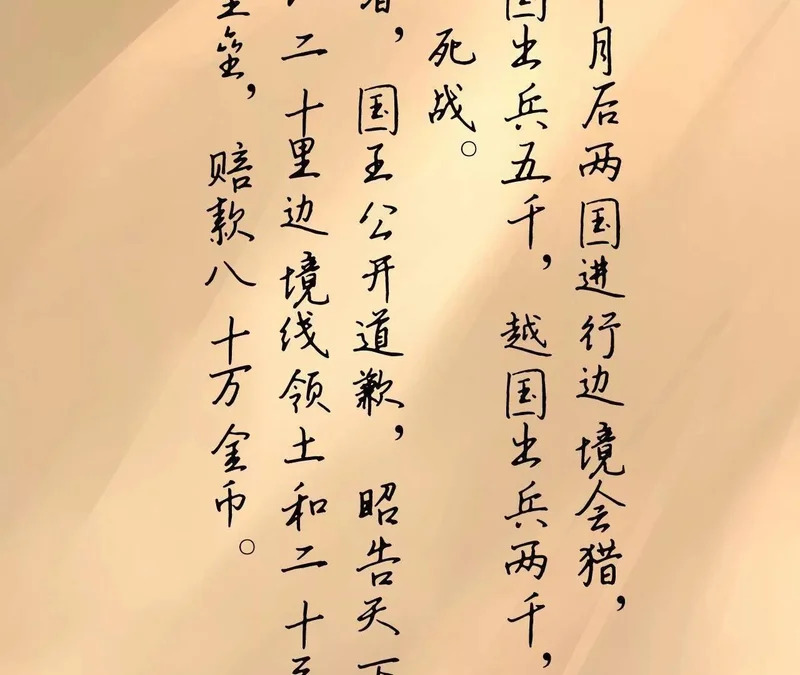 月后两国进行边境会猎，
国出兵五千，越国出兵两千，
死战。
，国王公开道歉，昭告天下
二十里边境线领土和二十
垒，赔款八十万金币。